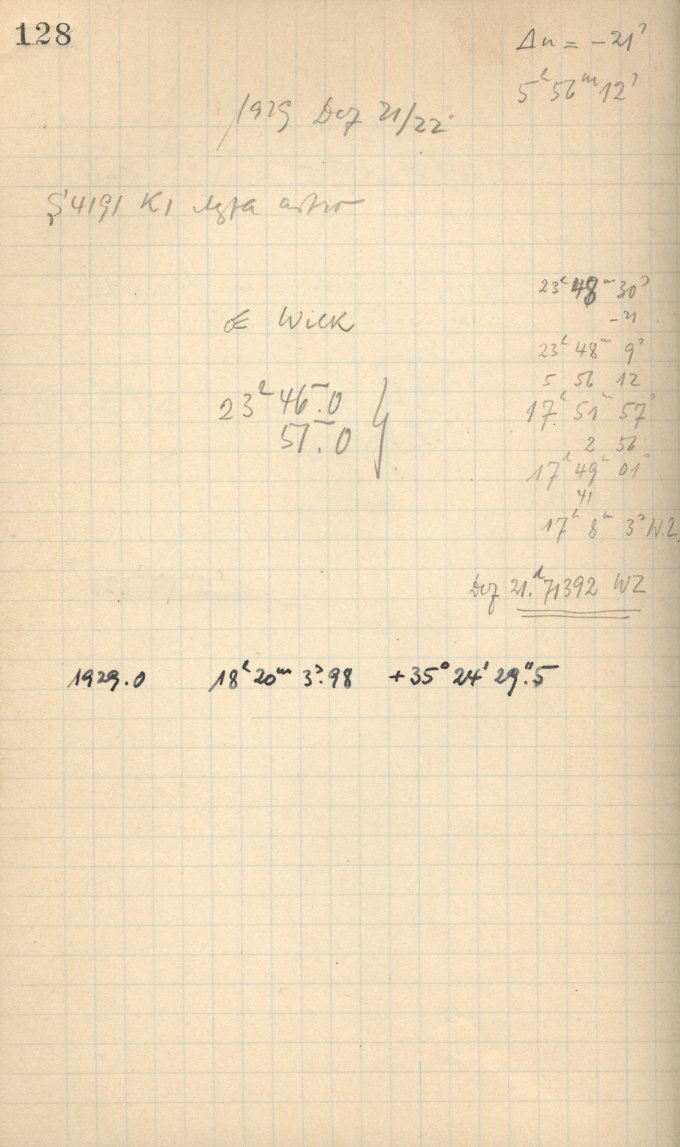 128
Δu = -21ˢ
5ʰ 56ᵐ 12ˢ
1929 Dez 21/22
4191 K1 Agfa astro
☄ Wilk
23ʰ 46ᵐ.0
51ᵐ.0
23ʰ 48ᵐ 30ˢ
-21
23ʰ 48ᵐ 9ˢ
5 56 12
17ʰ 51ᵐ 57ˢ
2 56
17ʰ 49ᵐ 01ˢ
41
17ʰ 8ᵐ 3ˢ W.Z.
Dez 21.ᵈ71392 WZ
1929.0 18ʰ 20ᵐ 3ˢ.98 +35° 24' 29".5